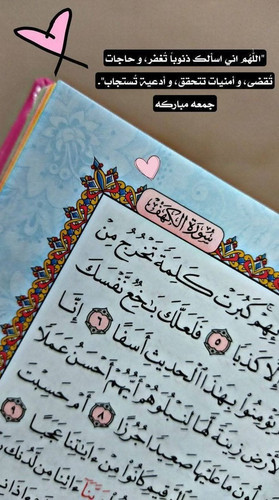 "اللهُم اني اسألك ذنوباً تُغفر، و حاجات
تُقضى، و أمنيات تتحقق، و أدعية تُستجاب".
جمعه مباركه
سُورَةُ الكَهْفِ
كَبُرَتْ كَلِمَةً تَخْرُجُ مِنْ
كَذِبًا ٥ فَلَعَلَّكَ بَاخِعٌ نَّفْسَكَ
يُؤْمِنُوا بِهَٰذَا الْحَدِيثِ أَسَفًا ٦ إِنَّا
زِينَةً لَّهَا لِنَبْلُوَهُمْ أَيُّهُمْ أَحْسَنُ عَمَلًا
مَا عَلَيْهَا صَعِيدًا جُرُزًا ٨ أَمْ حَسِبْتَ
كَانُوا مِنْ ءَايَٰتِنَا عَجَبًا ٩
ءَاتِنَا مِن لَّدُنكَ